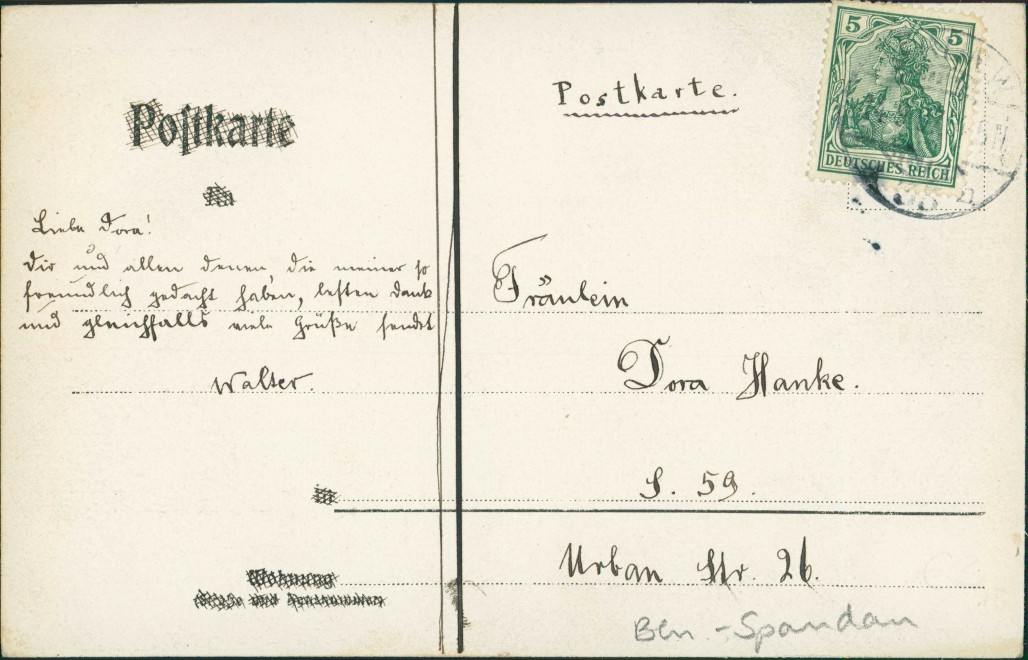 Postkarte
An
Liebe Dora!
Dir und allen denen, die meiner so
freundlich gedacht haben, besten Dank
und gleichfalls viele Grüße sendet
Walter.
in
Wohnung
Postkarte.
5 5
DEUTSCHES REICH
Fräulein
Dora Hanke.
S. 59.
Urban Str. 26.
Bln. - Spandau